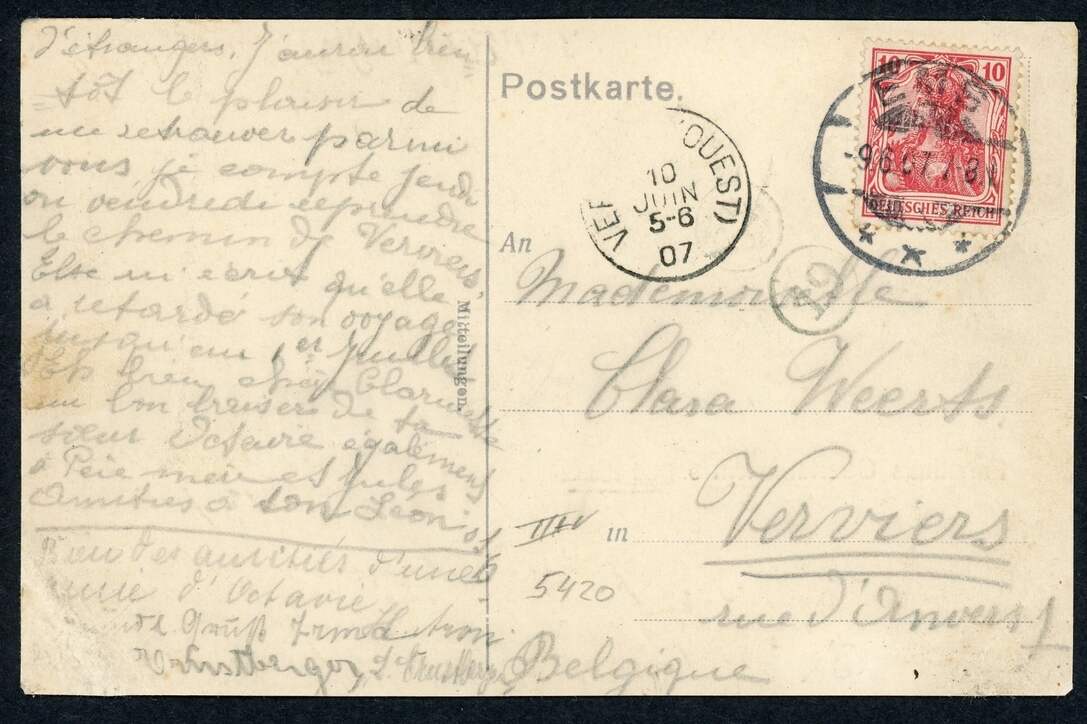 d'étrangers. J'aurai bien
tôt le plaisir de
me retrouver parmi
vous je compte jeudi
ou vendredi reprendre
le chemin de Verviers.
Else m'écrit qu'elle
a retardé son voyage
jusqu'au 1er Juillet
bien chère Clarinette
un bon baiser de ta
sœur Octavie également
à Père mère et Jules
Amitiés à ton Leon
Bien des amitiés d'une
amie d'Octavie
Gruß Irma
Mitteilungen.
Postkarte.
10 10
DEUTSCHES REICH
-9.6.07.
VER (OUEST)
10
JUIN
5-6
07
An
Mademoiselle
Clara Weerts
in
Verviers
rue d'Anvers 1
5420
Belgique